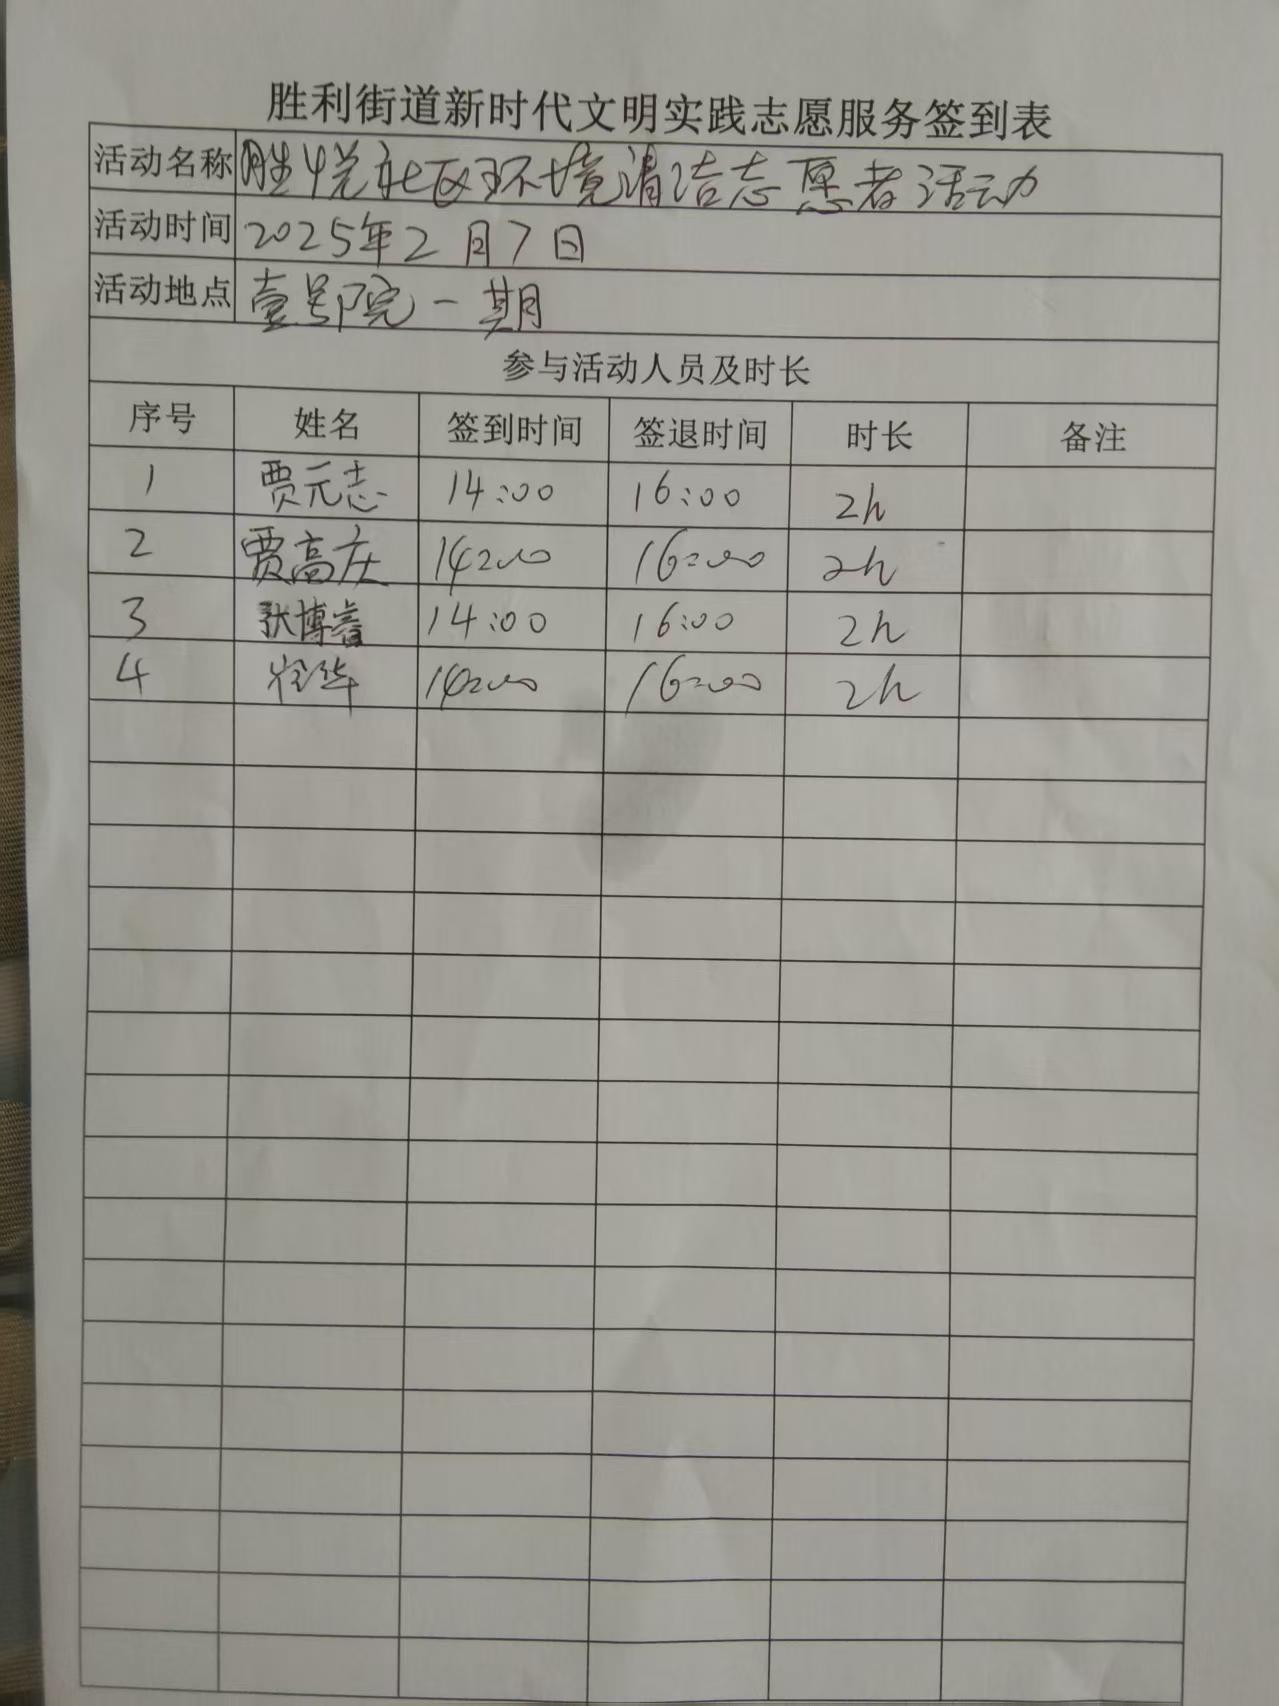 胜利街道新时代文明实践志愿服务签到表
活动名称 胜悦社区环境清洁志愿者活动
活动时间 2025年2月7日
活动地点 壹号院一期
参与活动人员及时长
序号 姓名 签到时间 签退时间 时长 备注
1 贾元志 14:00 16:00 2h
2 贾高庆 14:00 16:00 2h
3 张博睿 14:00 16:00 2h
4 崔华 14:00 16:00 2h